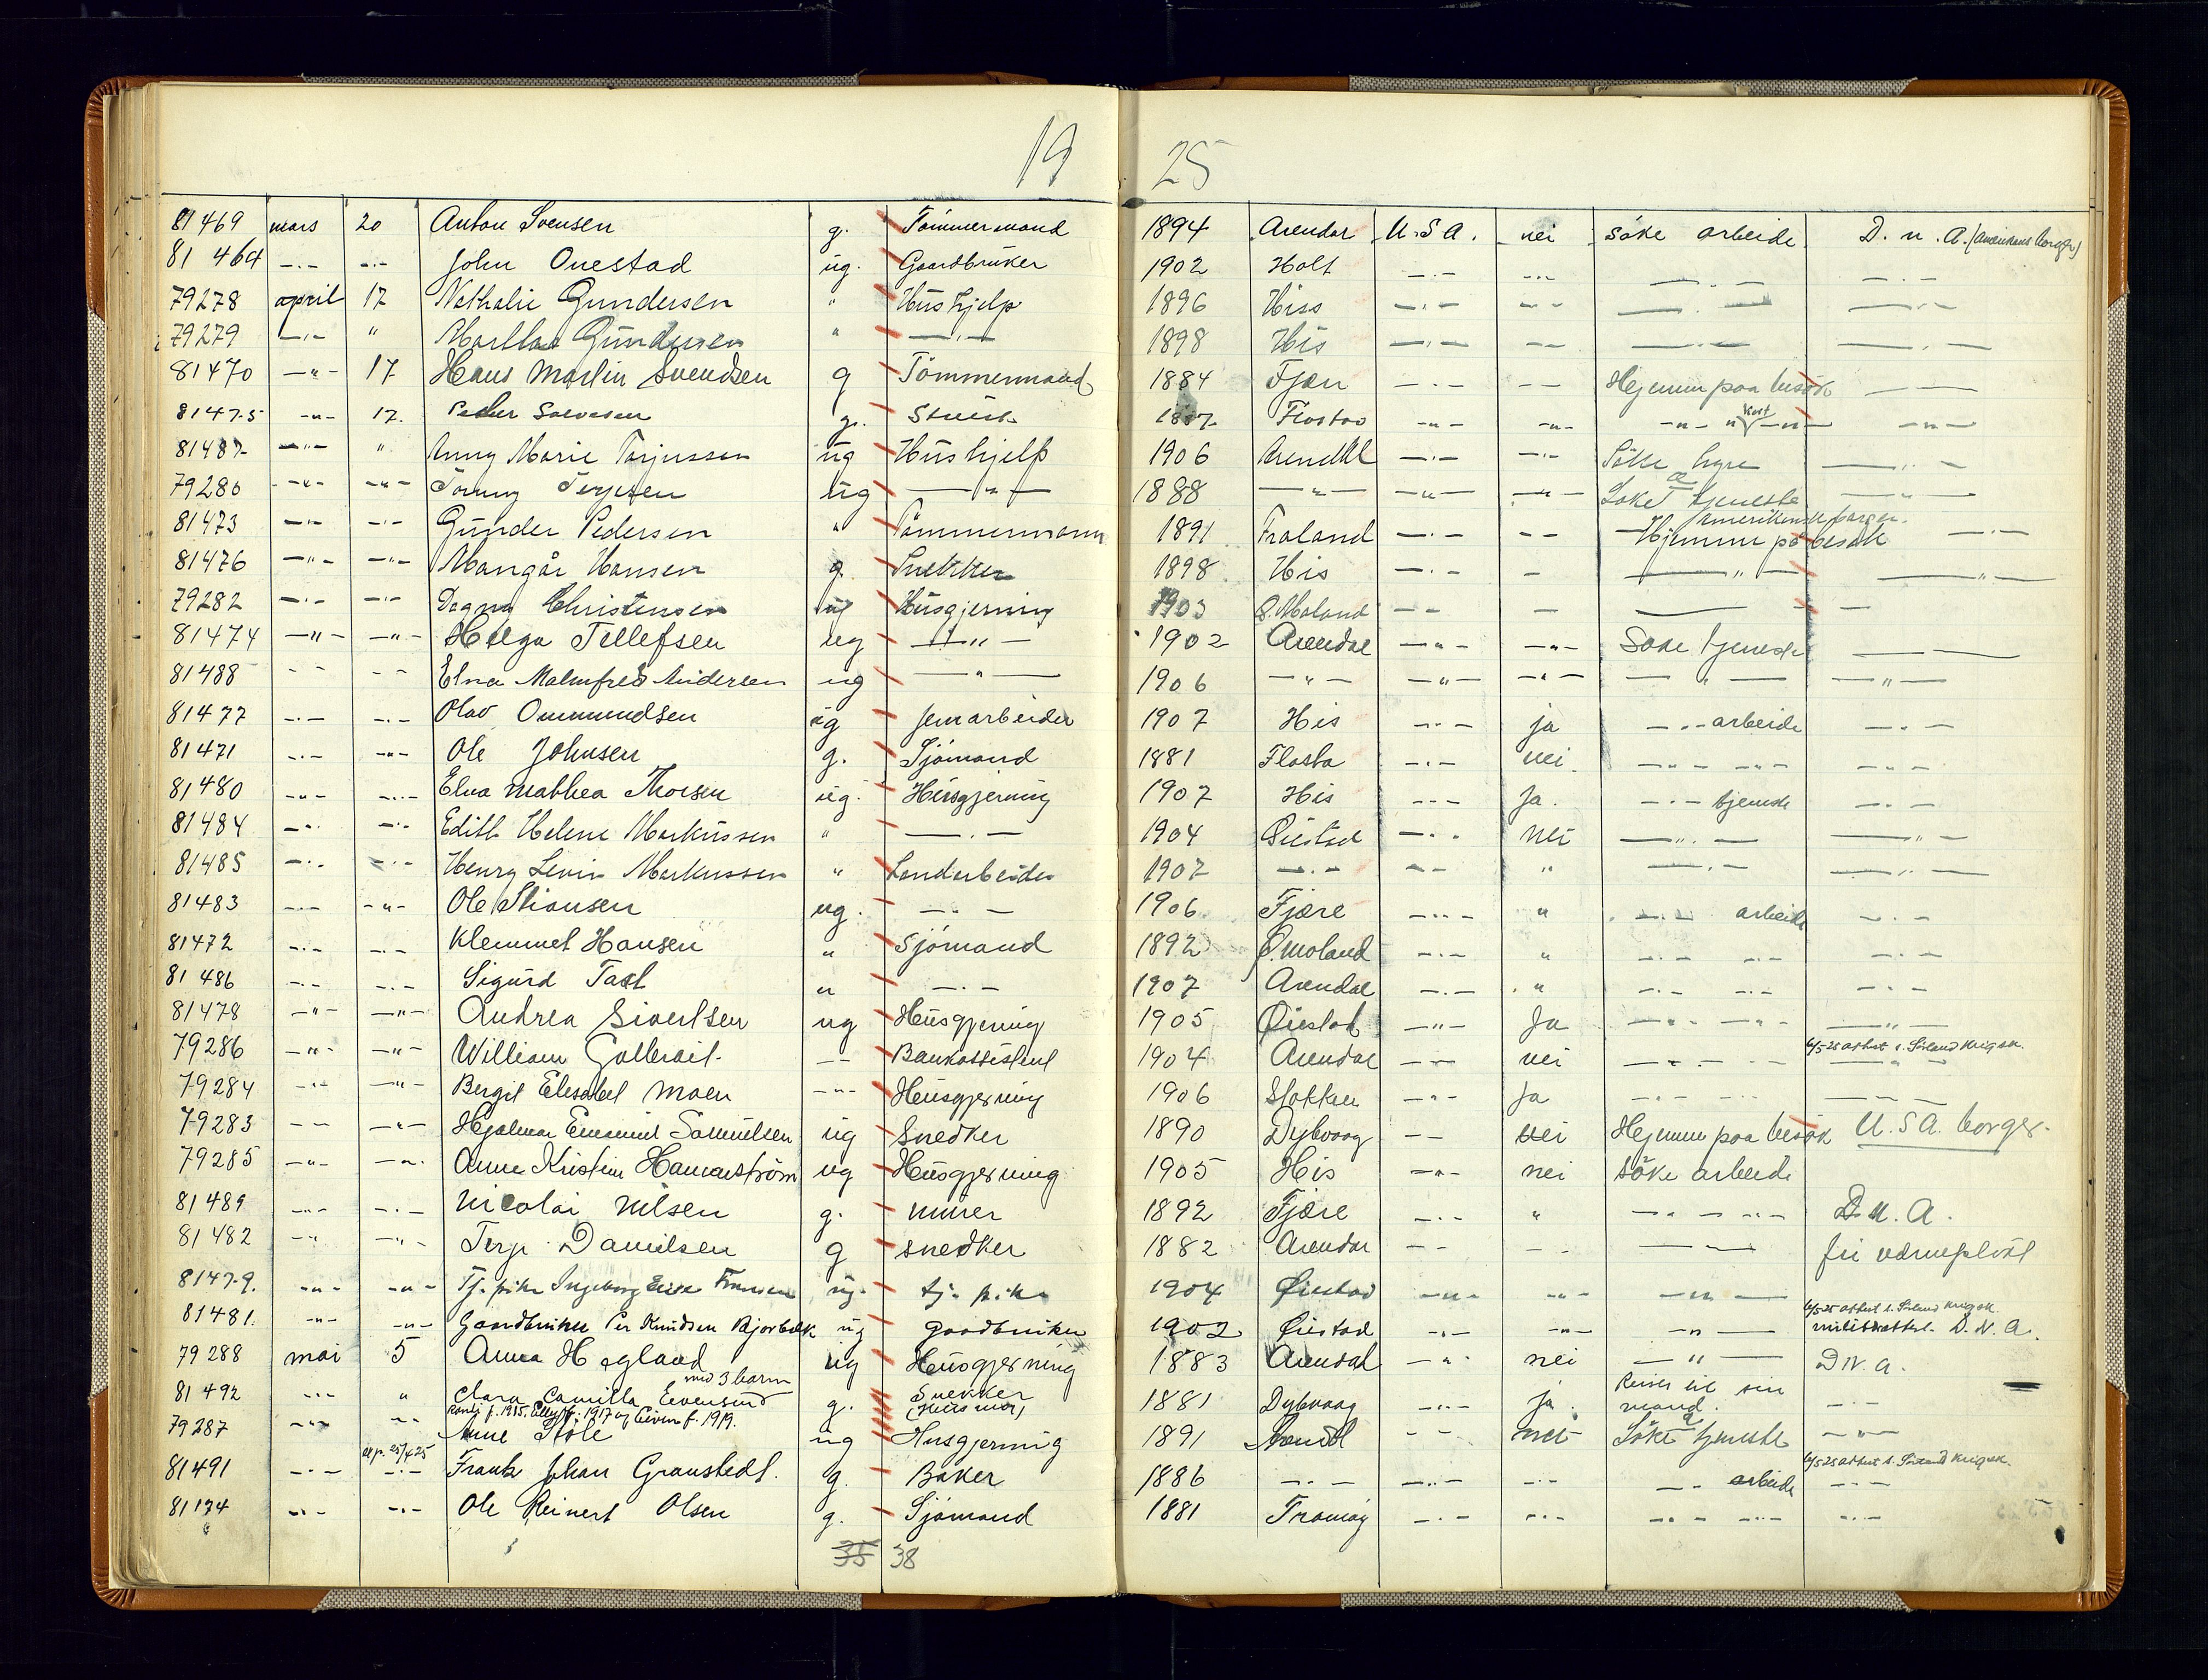 19 25
81469 mars 20 Anton Svensen g. Tömmermand 1894 Arendal U.S.A. nei söke arbeide D.n.A. (Amerikans borger)
81464 —.— —.— John Onestad ug. Gaardbruker 1902 Holt —.— —..— —.— —.—
79278 april 17 Nathalie Gundersen " Hushjelp 1896 Hiss —.— — — —.— —.—
79279 —.— " Martha Gundersen " —.— 1898 His —.— — — —.— —.—
81470 —"— 17 Hans Martin Svendsen g Tömmermand 1884 Fjære —.— — — Hejemm paa besök — —
81475 —"— 17. Peder Salvesen g. 1887 Flostad —"— —"— —"— —"—
81487 —"— " Anny Marie Torjussen ug Hushjelp 1906 Arendal —.— —.— Söke hyre —.—
79280 —"— —"— Tommy Terjesen ug —"— 1888 —"— —"— —"— Söke tjeneste —"—
81473 —.— —.— Gunder Pedersen " Tömmermann 1891 Froland —.— — — Amerikansk borger. Hjemme på besøk —.—
81476 —"— —"— Mangår Hansen g. Snekker 1898 His —.— — —"— —"—
79282 —.— —.— Dagny Christensen ug Husgjerning 1903 Ö. Moland — — — — —
81474 —"— —"— Helga Tellefsen ug —"— 1902 Arendal —"— —"— Söke tjeneste — —
81488 — — — — Elna Malmfred Andersen ug —"— 1906 —"— —"— —"— —"— —"—
81477 —.— —.— Olav Ommundsen ug Jernarbeider 1907 His —..— ja —..— arbeide —.—
81471 —.— —"— Ole Johnsen g. Sjömand 1881 Flosta —.— nei. —"— —"— —"—
81480 —"— —..— Elna Mathea Thorsen ug. Husgjerning 1907 His —..— Ja. —.— tjeneste —.—
81484 —"— —.— Edith Helene Markussen " —.— 1904 Öiestad —.— nei —"— —"—
81485 —.— —.— Henry Levin Markussen " Landarbeider 1907 —.— — — " —.— —.—
81483 —.— —"— Ole Stiansen ug. —"— 1906 Fjære —..— " —.— arbeide —.—
81472 —.— —.— Klemmet Hansen " Sjömand 1892 Ö. Moland —.— " —.— —.— —.—
81486 —.— —.— Sigurd Tast " —.— 1907 Arendal —.— " —.— —.— —.—
81478 —"— —"— Andrea Sivertsen ug Husgjerning 1905 Öiestad —"— Ja —"— —"— —"—
79286 —"— —"— William — — Bankassistent 1904 Arendal — — nei —"— —
79284 —"— —"— Bergit Elisabet Moen —"— Husgjerning 1906 Stokken —"— Ja —.— —.— — — —
79283 — — —"— Hjalmar Samuelsen ug Snedker 1890 Dybvaag — — nei Hejemm paa besök U.S.A. borger.
79285 —"— —"— Anne Kristine Hammerström ug Husgjerning 1905 His —"— nei söke arbeide
81489 —"— —.— Nicolai Nilsen g. murer 1892 Fjære —.— " —"— —"— D.N.A.
81482 —"— —"— Terje Danielsen g snedker 1882 Arendal — — — — — — fri værneplikt
81479. —"— —"— Tj. pike Ingeborg ug. tj. pike 1904 Öiestad —"— —"— —"—
81481. —"— —"— Gaardbruker Per Knudsen Bjorbæk ug gaardbruker 1902 Öiestad —.— —"— —"— D.N.A.
79288 mai 5 Anna Hegland ug Husgjerning 1883 Arendal —"— nei —"— D.N.A.
81492 —..— " Clara Camilla Evensen med 3 barn g. Snekker (Husmor) 1881 Dybvaag —..— ja. Reiser til sin mand. —.—
Randi f. 1915, Elly f. 1917 og Eivin f. 1919.
79287 —"— —"— Anne Stöle ug Husgjerning 1891 Arendal — — nei Söke tjeneste —"—
81491 —.— —.— Frank Johan Granstedt. g. Baker 1886 —.— —..— —.— —"— arbeide —.—
81134 —.— —.— Ole Reinert Olsen g. Sjömand 1881 Tromöy —.— —..— —.— —.— —.—
35 38